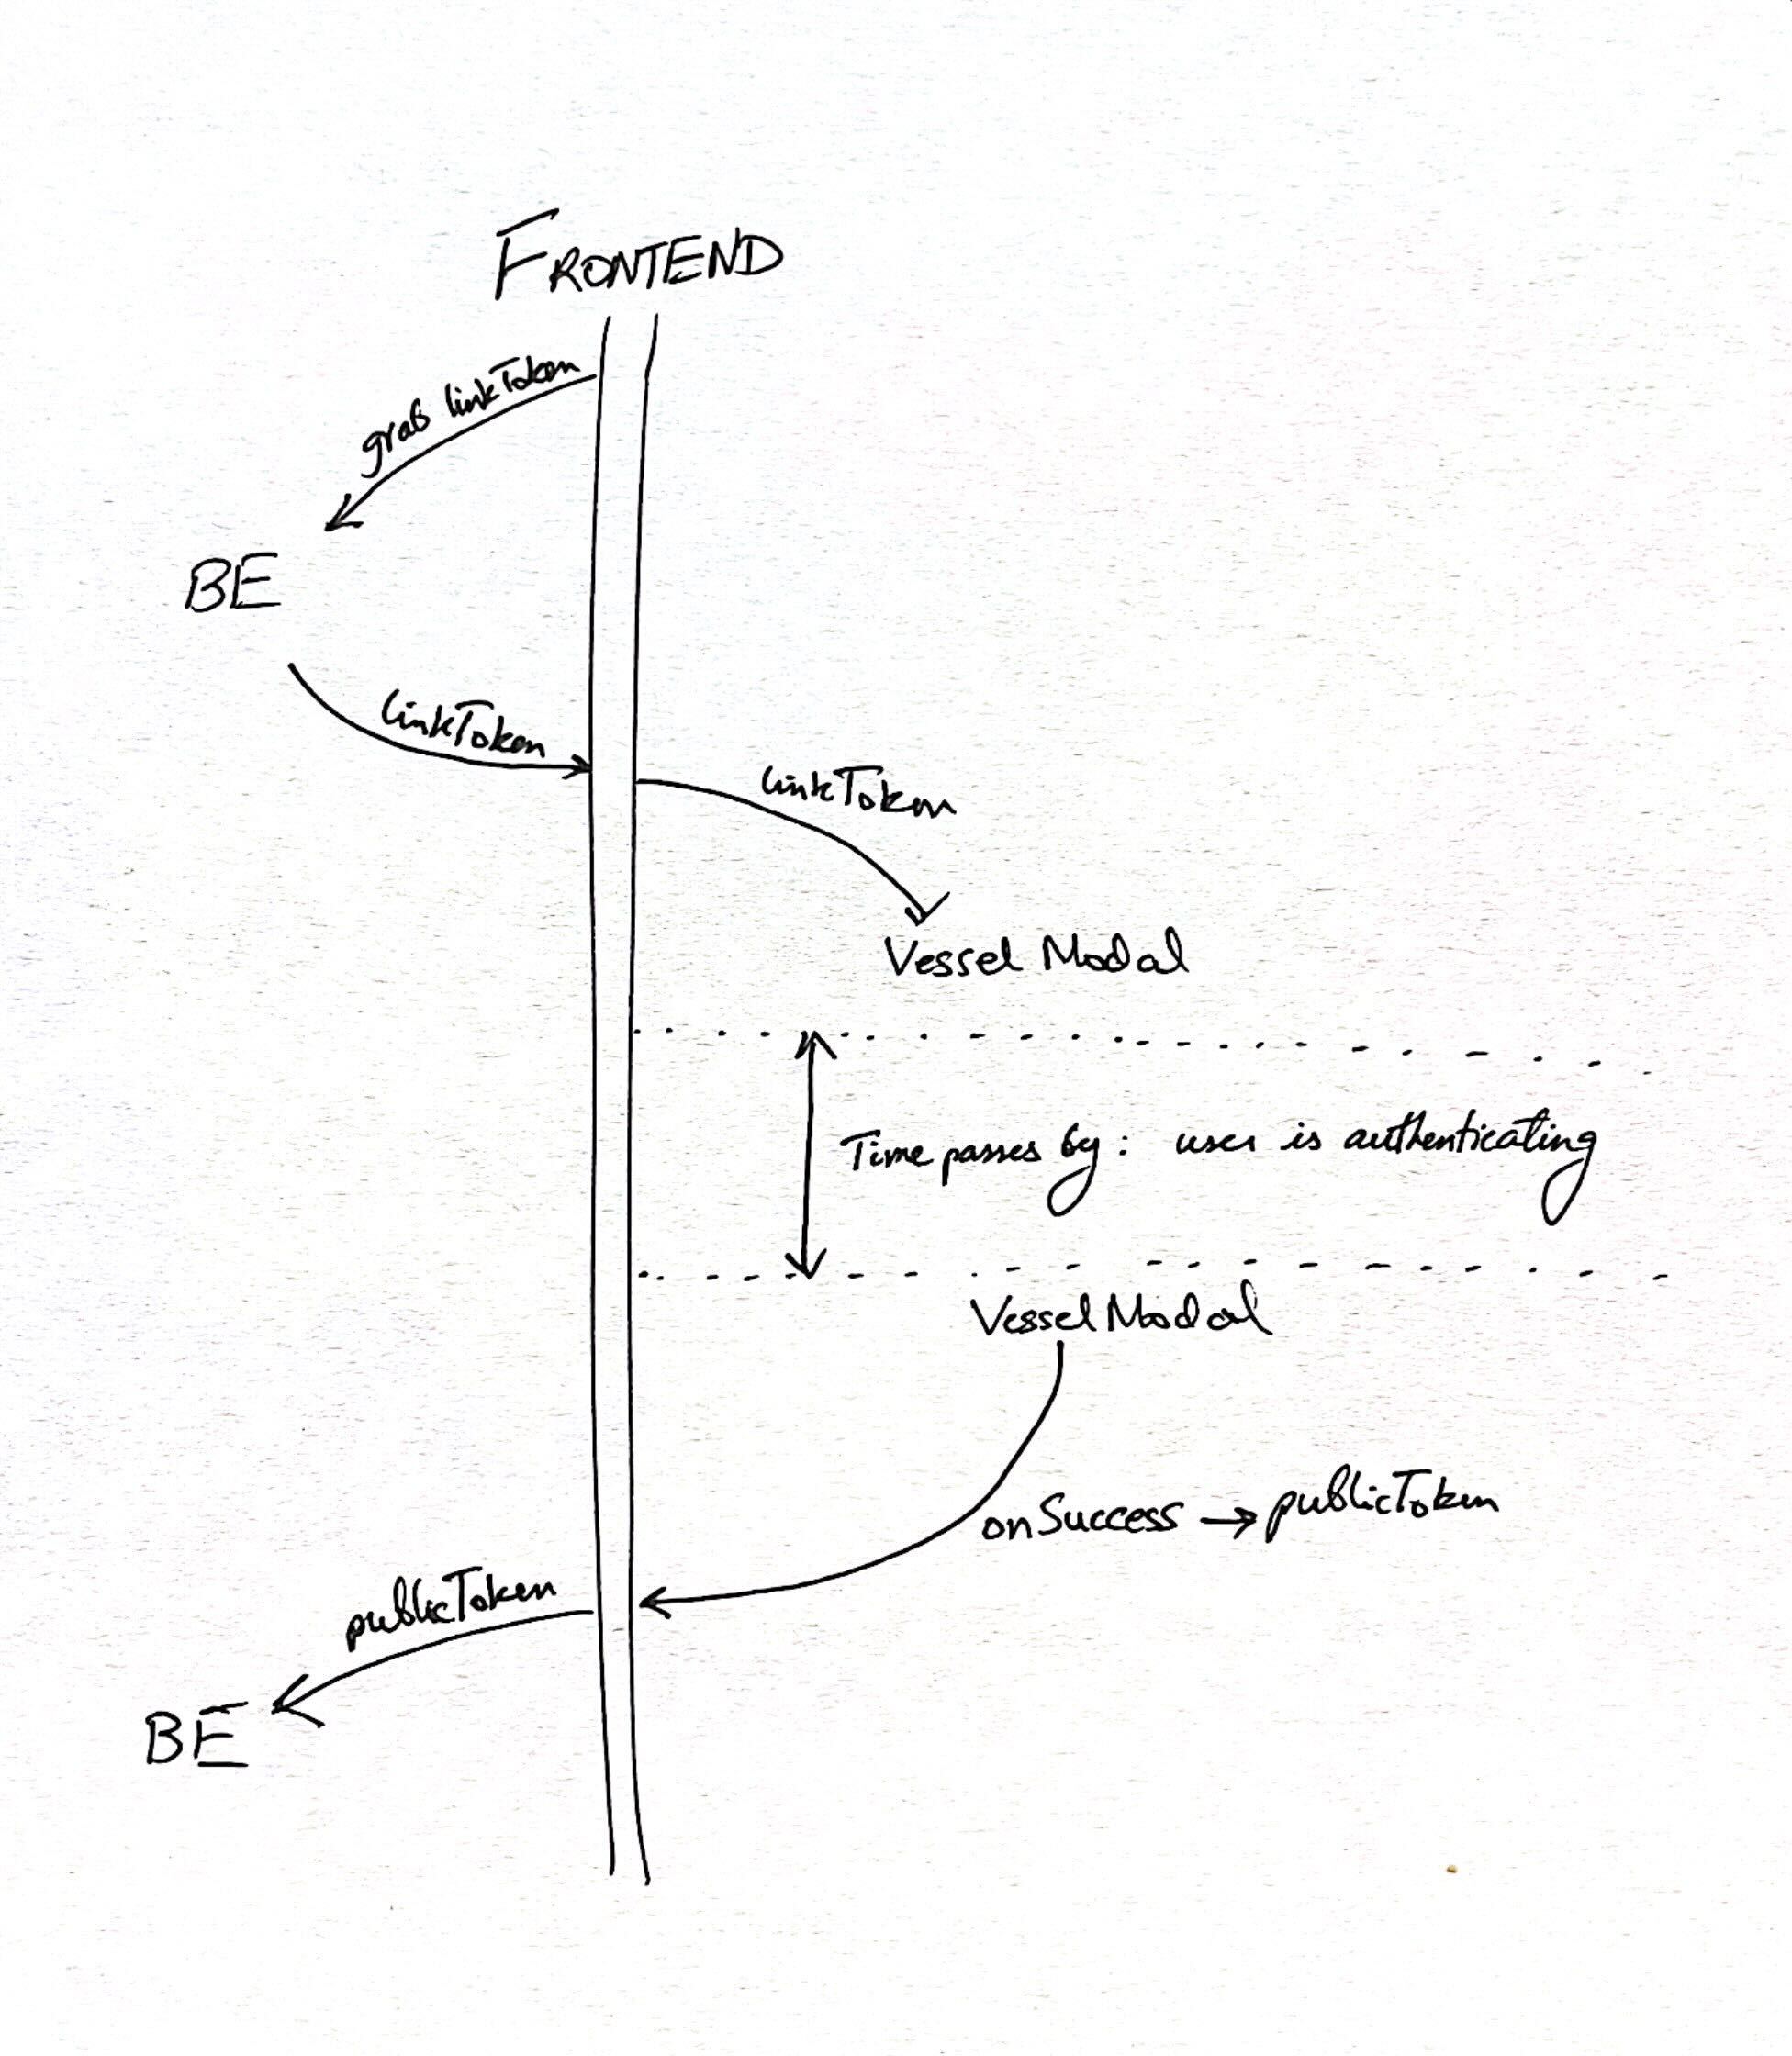 FRONTEND
grab linkToken
BE
linkToken
linkToken
Vessel Modal
Time passes by: user is authenticating
Vessel Modal
onSuccess → publicToken
publicToken
BE